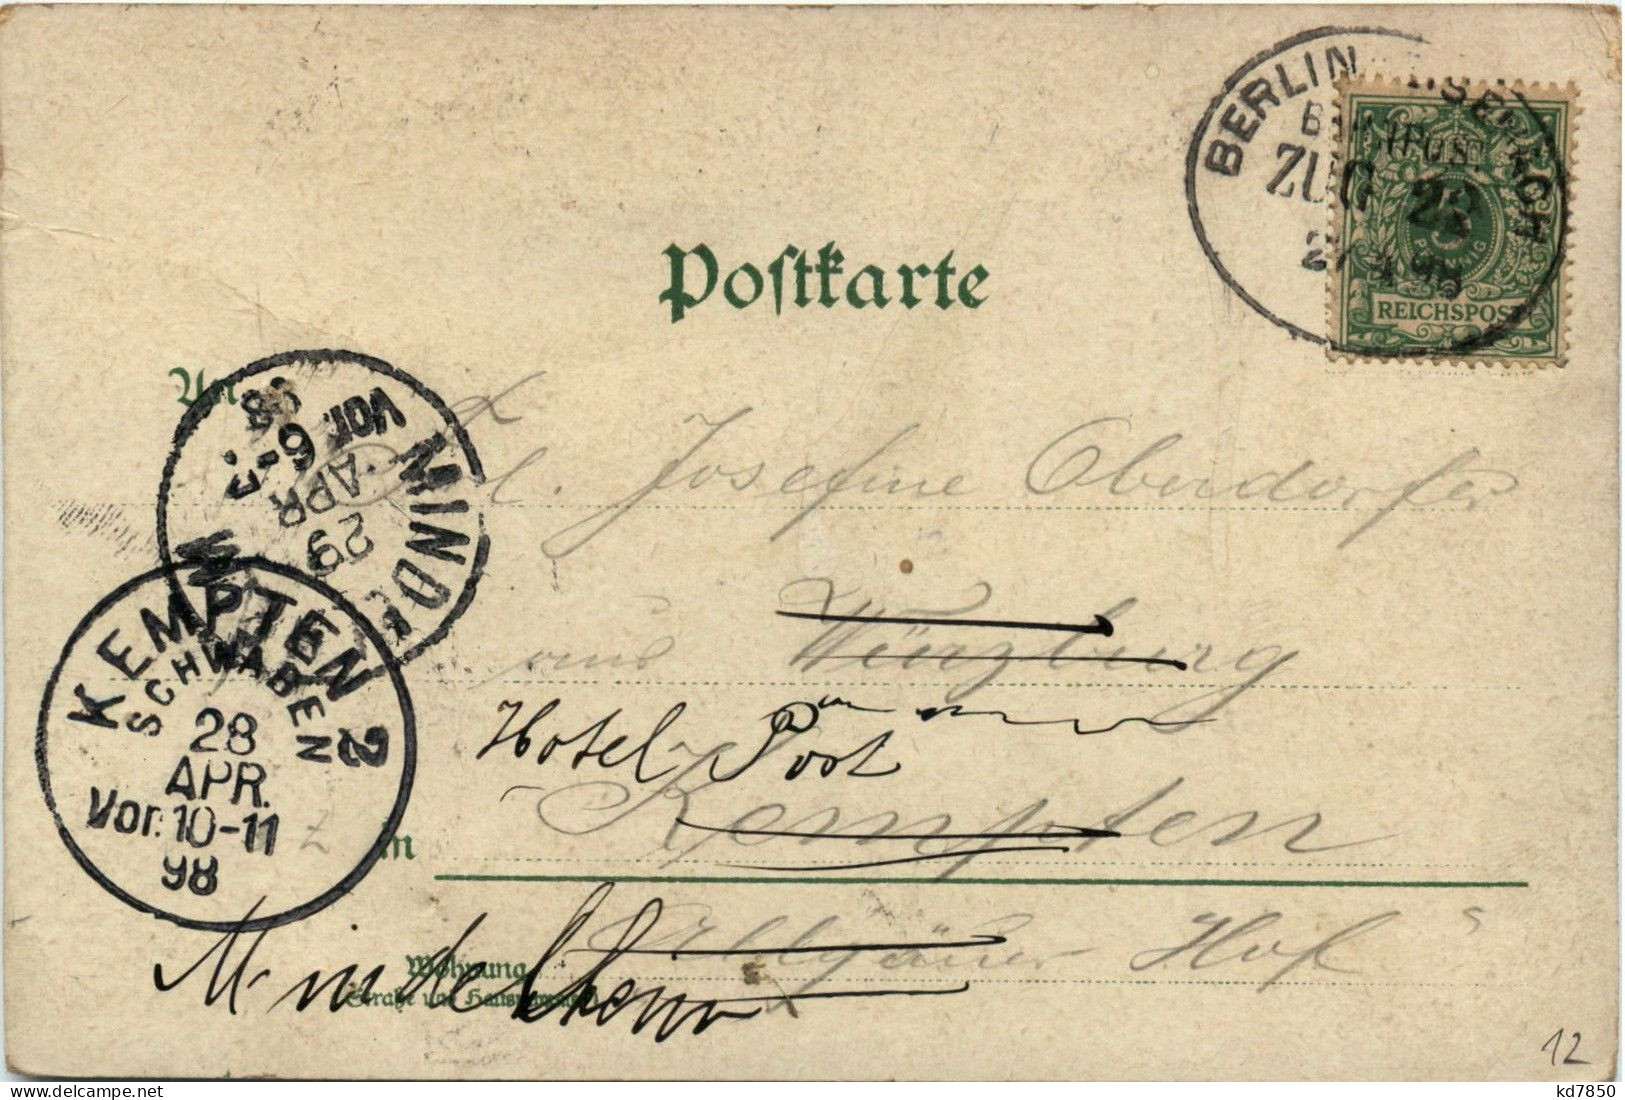 BERLIN
BAHNPOST
ZUG 22
REICHSPOST
Postkarte
An
Frl. Josefine Oberdorfer
aus Würzburg
Hotel Post
in Kempten
Allgäuer Hof
Mindelheim
Wohnung
Straße und Hausnummer
29
APR.
Vor. 6-7
98
KEMPTEN 2
SCHWABEN
28
APR.
Vor. 10-11
98
12
kd7850